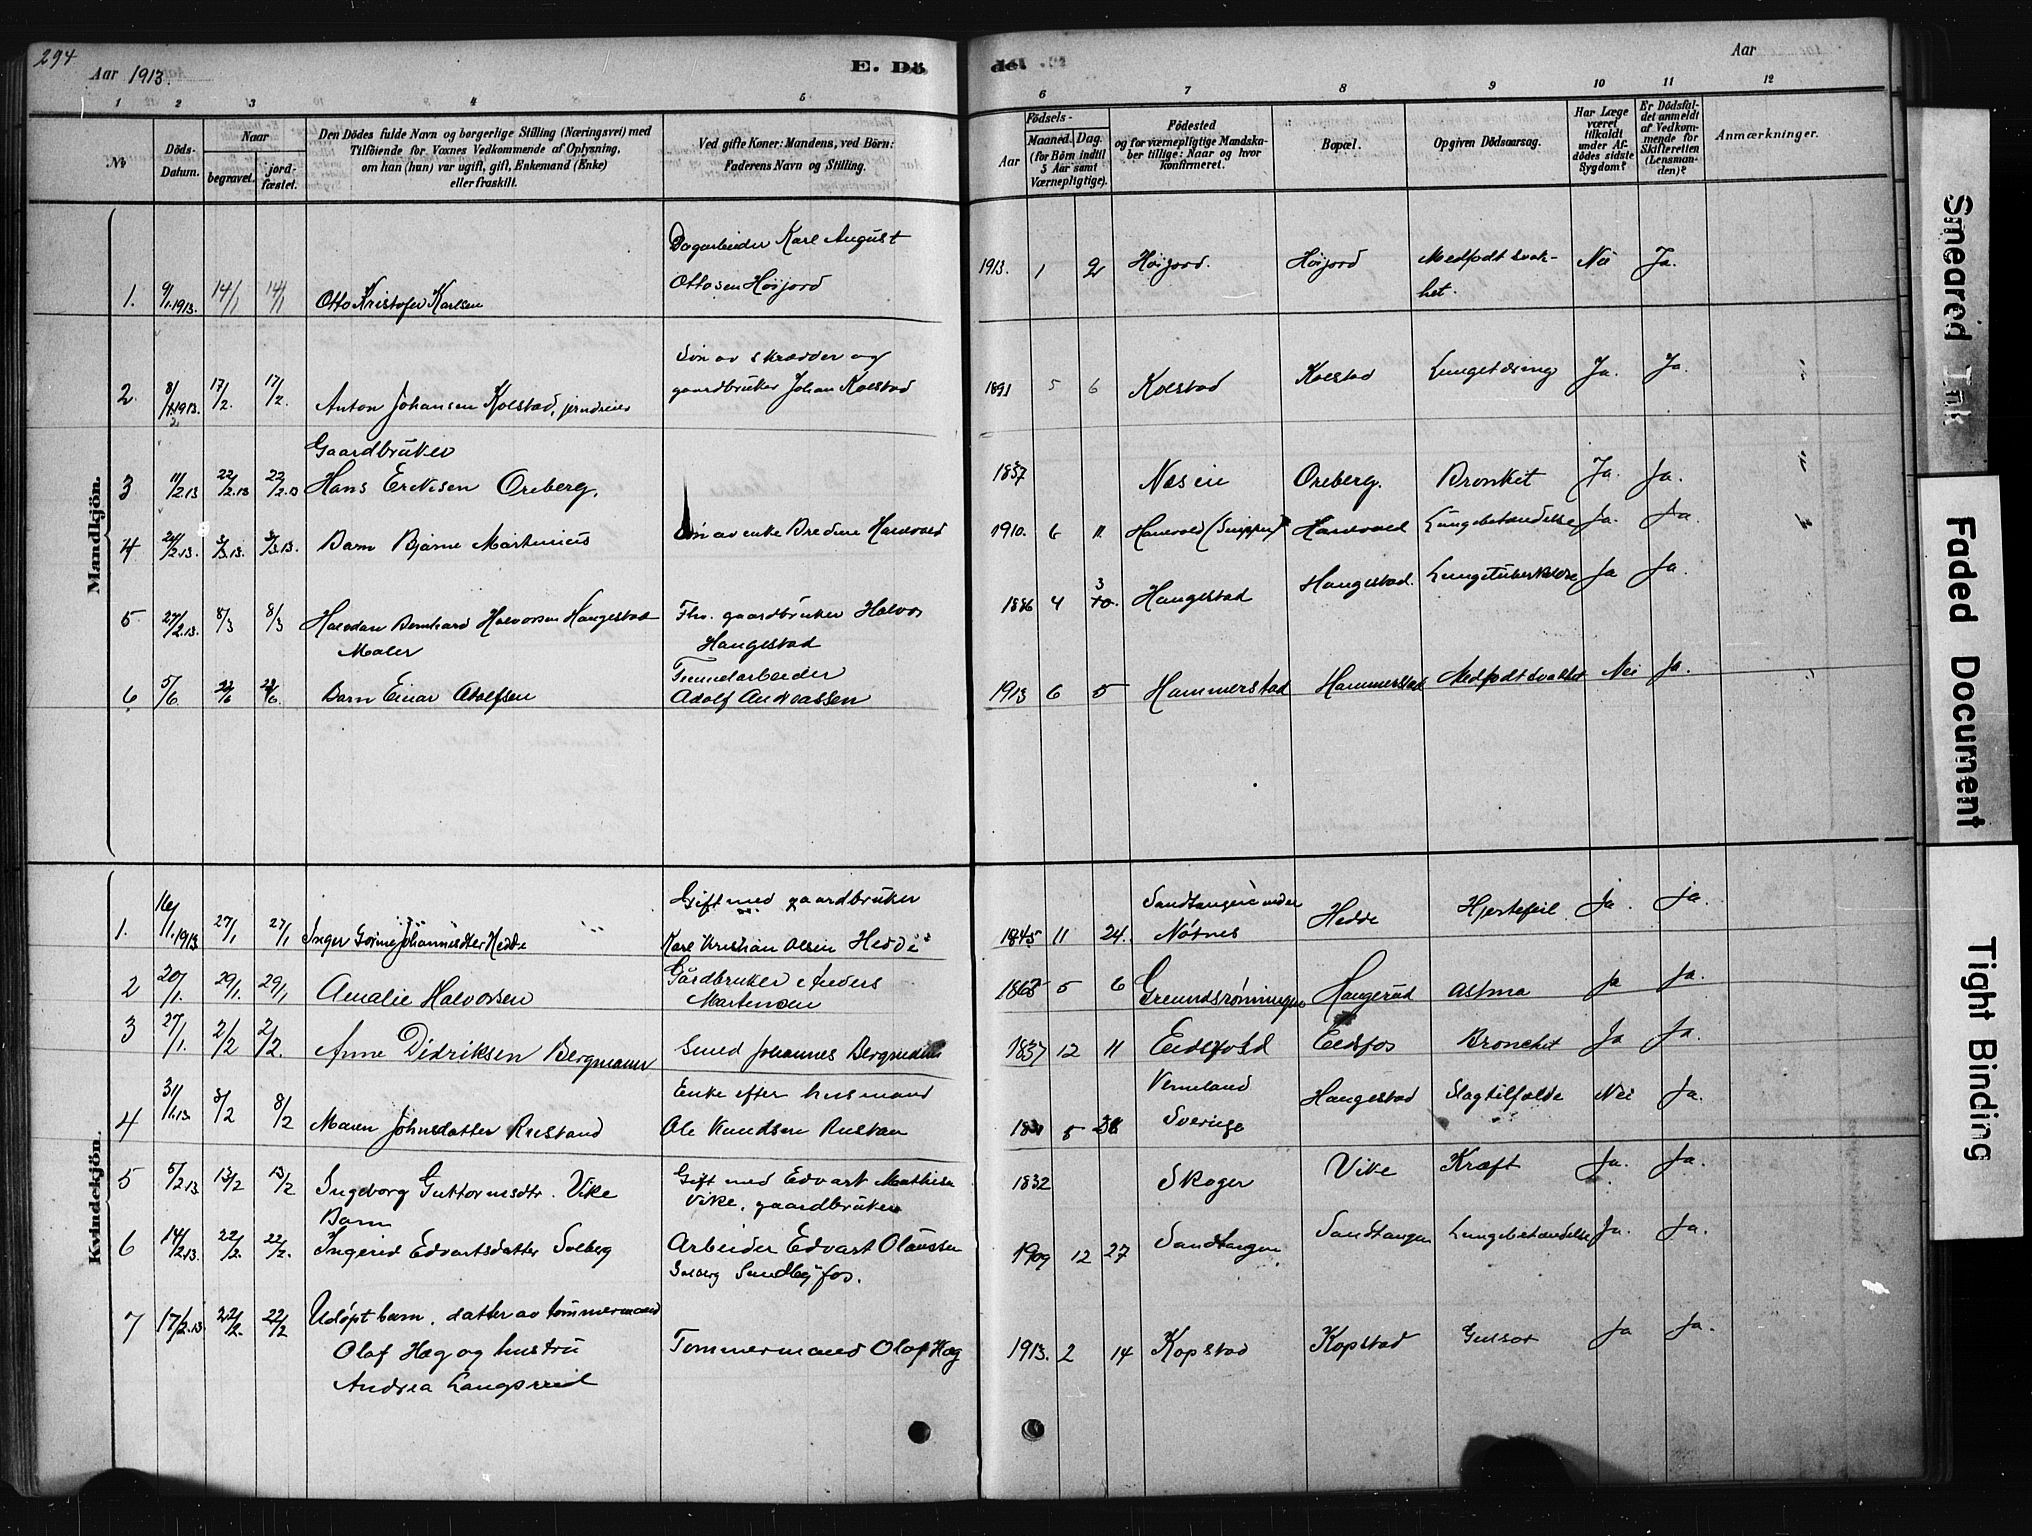 294
Aar 1913.
E. Dö
del
Aar
1 2 3 4 5 6 7 8 9 10 11 12
No
Döds-
Datum.
Naar
begravet. jord-
fæstet.
Den Dödes fulde Navn og borgerlige Stilling (Næringsvei) med
Tilföiende for Voxnes Vedkommende af Oplysning,
om han (hun) var ugift, gift, Enkemand (Enke)
eller fraskilt.
Ved gifte Koner: Mandens, ved Börn:
Faderens Navn og Stilling.
Födsels-
Aar Maaned. Dag.
(for Börn indtil
5 Aar samt
Værnepligtige).
Födested
og for værnepligtige Mandska-
ber tillige: Naar og hvor
konfirmeret.
Bopæl.
Opgiven Dödsaarsag.
Har Læge
været
tilkaldt
under Af-
dödes sidste
Sygdom?
Er Dödsfal-
det anmeldt
af Vedkom-
mende for
Skifteretten
(Lensman-
den)?
Anmærkninger.
Mandkjön.
Dagarbeider Karl August
1. 9/1.1913. 14/1 14/1 Otto Kristofer Karlsen Ottosen Höijord 1913. 1 2 Höijord. Höijord Medfödt svak-
het. Nei Ja.
Sön av skrædder og
2. 17/2. 17/2. Anton Johansen Kolstad, gaardbruker Johan Kolstad 1891 5 6 Kolstad Kolstad Lungetæring Ja. Ja.
Gaardbruker
3 11/2.13 22/2.13 22/2. Hans Eriksen Oreberg. 1837 Oreberg. Bronkit Ja. Ja.
4 24/2.13. 3/3.13. 3/3.13. Barn Bjarne Martinius Sön av enke Bredine Hanevold 1910. 6 11 Hanevold Hanevold Lungebetændelse Ja. Ja.
5 27/2.13. 8/3 8/3 Halvdan Bernhard Halvorsen Hangestad Fhv. gaardbruker Halvor 1886 4 3 Hangestad Hangestad. Lungetuberkulose Ja Ja.
Maler Hangestad
Tunnelarbeider
6 5/6. 22/6 22/6. Barn Einar Adolfsen Adolf Andreassen 1913 6 5 Hammerstad Hammerstad Medfödt svakhet Nei Ja.
Kvindekjön.
Gift med gaardbruker Sandtangen under
1. 16/1.1913 27/1 27/1 Inger Gorine Johannesdtr Hedde Karl Kristian Olsen Hedde 1845 11 24. Nötnes Hedde Hjertefeil Ja. Ja.
2 20/1. 29/1. 29/1 Amalie Halvorsen Gårdbruker Anders
Martinsen 5 6 Hangerud Astma Ja Ja.
3 27/1. 2/2 2/2. Anne Didriksen Bergmann Smed Johannes Bergmann 1837 12 11 Eidsfos Bronchit Ja Ja.
Enke efter husmand Vermland
4 31/1.13 8/2 8/2 Maren Johnsdatter Rustand Ole Knudsen Rustan 5 Sverige Hangestad Slagtilfælde Nei Ja.
5 5/2.13 13/2 13/2 Ingeborg Guttormsdtr. Vike Gift med Edvart Mathisen
Vike, gaardbruker 1832 Skoger Vike Kræft Ja. Ja.
Barn
6 14/2.13. 22/2. 22/2. Ingerid Edvartsdatter Solberg Arbeider Edvart Olaussen
Solberg Sundbyfos. 1909 12 27 Sandtangen Sandtangen Lungebetændelse Ja. Ja.
7 17/2.13. 22/2. 22/2 Udöpt barn, datter av tömmermand
Olaf Hag og hustru Tömmermand Olaf Hag 1913. 2 14 Kopstad Kopstad Gulsot Ja Ja.
Andrea Langsrud
Smeared Ink
Faded Document
Tight Binding